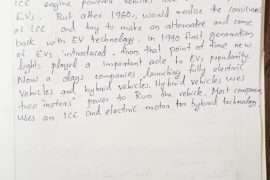 ICE engine powered vehicles
EVs. But after 1960, world realise the
of ICE and try to make an alternative and come
back with EV technology. in 1990 first generation
of EVs introduced. from that point of time new
lights played a important role to EVs popularity.
Now a days companies launching fully electric
vehicles and hybrid vehicles. Hybrid vehicles uses
two "motors" power to Run the vehicle. Most
uses an ICE and electric motor for hybrid technology.